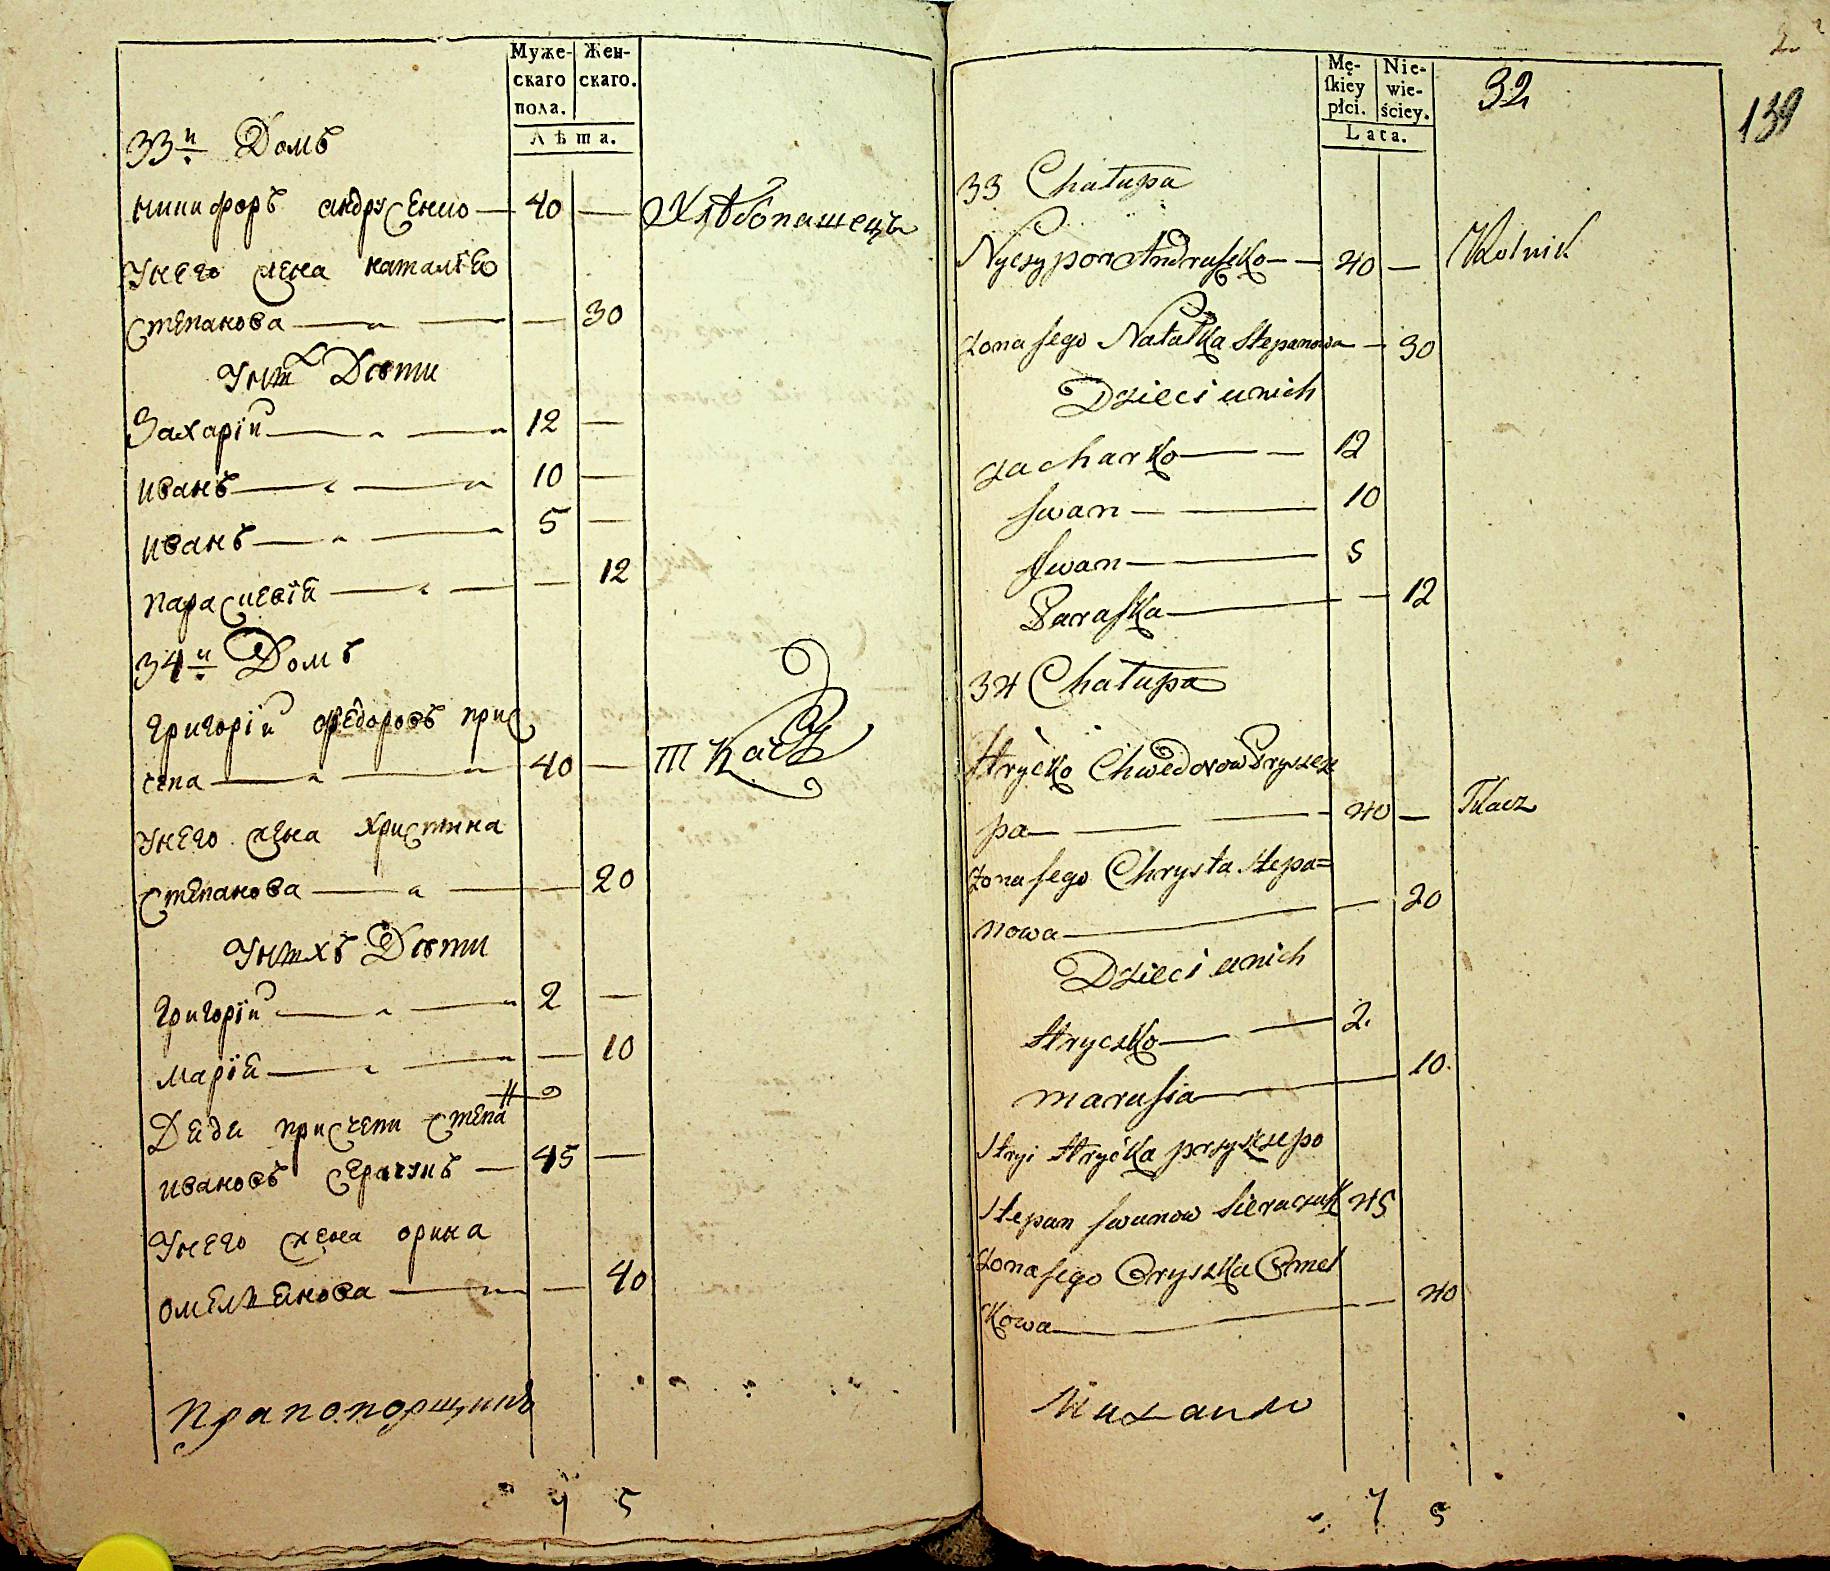 Муже-
скаго
пола.
Жен-
скаго.
Лѣта.
33й Домъ
никифоръ андрусенко 40 Хлѣбопашецъ
Унего жена наталія
степанова 30
Унихъ Дѣти
Захарій 12
иванъ 10
иванъ 5
параскевія 12
34й Домъ
григорій федоровъ прис
чепа 40 ткачъ
Унего жена христина
степанова 20
Унихъ Дѣти
григорій 2
марія 10
Дядя присчепи степа
ивановъ серачукъ 45
Унего жена орина
омелянова 40
прапопорщикъ
7 5
2
Mę-
ſkiey
płci.
Nie-
wie-
ściey.
Lata.
32
139
33 Chałupa
Nyczypor Andruſzko 40 Rolnik
Zona Jego Natałka Stepanowa 30
Dzieci unich
Zacharko 12
Jwan 10
Jwan 5
Paraſka 12
34 Chałupa
Hryćko Chwedorow Pryszcze
pa 40 Tkacz
Zona Jego Chrysta Stepa=
nowa 20
Dzieci unich
Hryczko 2.
Marusia 10.
Stryi Hryćka
Stepan Jwanow Sieraczuk 45
Zona Jego Oryszka Omel
kowa 40
7 5